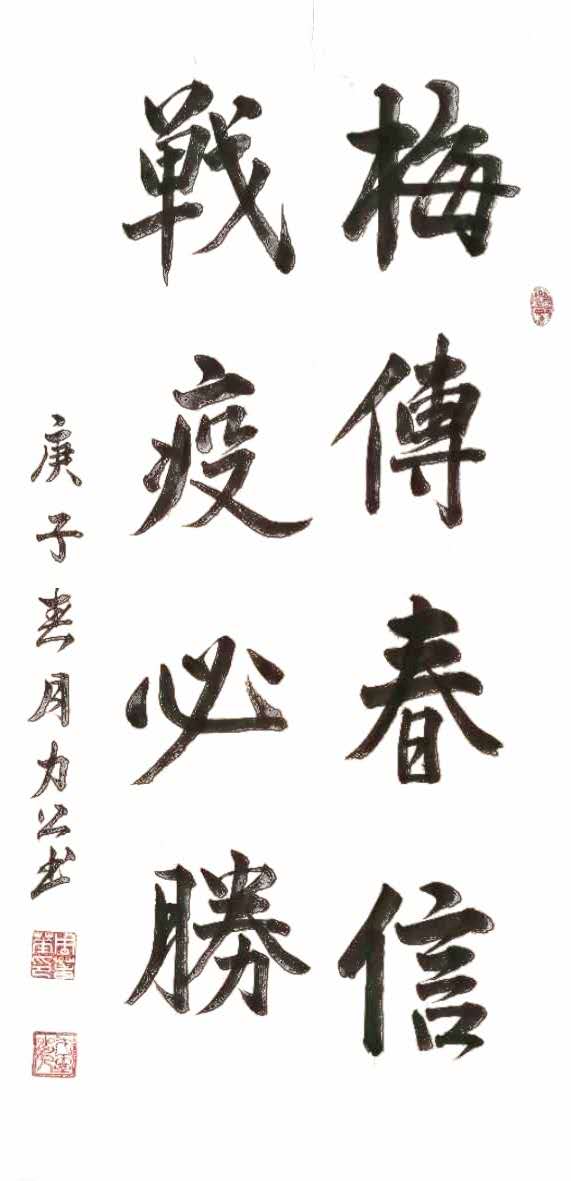 梅傳春信
戰疫必勝
庚子春月力公书